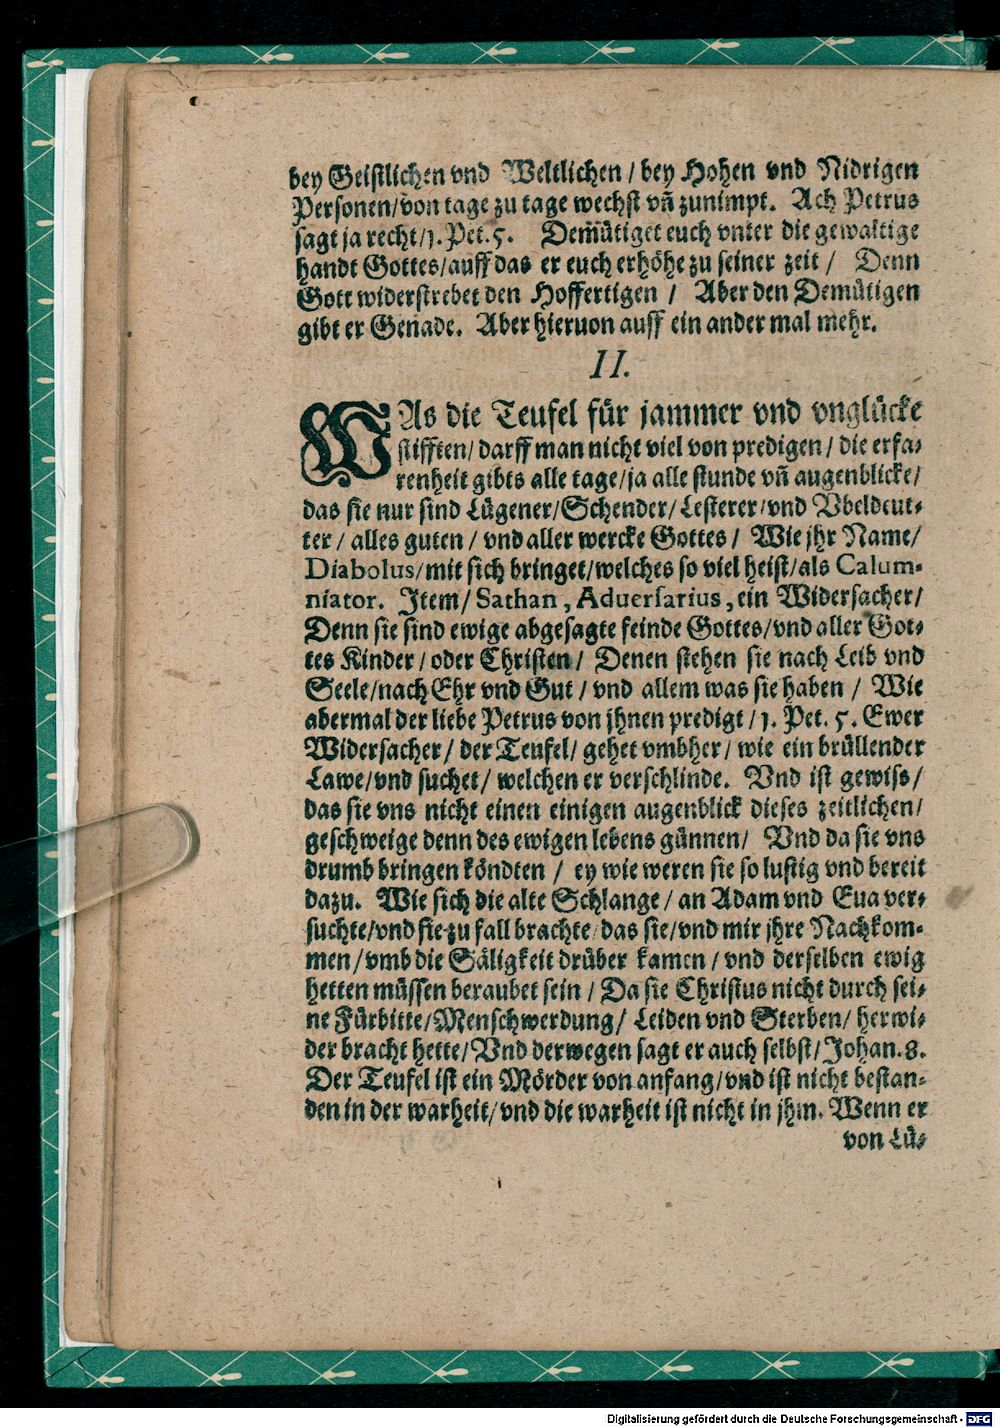 bey Geistlichen vnd Weltlichen / bey Hohen vnd Nidrigen
Personen/von tage zu tage wechst vñ zunimpt. Ach Petrus
sagt ja recht/1. Pet. 5. Dem̃ütiget euch vnter die gewaltige
handt Gottes/auff das er euch erhöhe zu seiner zeit / Denn
Gott widerstrebet den Hoffertigen / Aber den Demütigen
gibt er Genade. Aber hieruon auff ein ander mal mehr.
II.
WAs die Teufel für jammer vnd vnglücke
stifften/ darff man nicht viel von predigen / die erfa⸗
renheit gibts alle tage/ja alle stunde vñ augenblicke/
das sie nur sind Lügener/Schender/Lesterer/vnd Vbeldeut⸗
ter / alles guten / vnd aller wercke Gottes / Wie jhr Name/
Diabolus/mit sich bringet/welches so viel heist/als Calum-
niator. Item/ Sathan, Aduersarius, ein Widersacher/
Denn sie sind ewige abgesagte feinde Gottes/vnd aller Got⸗
tes Kinder / oder Christen / Denen stehen sie nach Leib vnd
Seele/nach Ehr vnd Gut / vnd allem was sie haben / Wie
abermal der liebe Petrus von jhnen predigt / 1. Pet. 5. Ewer
Widersacher/ der Teufel/ gehet vmbher/ wie ein brüllender
Lawe/vnd suchet/ welchen er verschlinde. Vnd ist gewiss/
das sie vns nicht einen einigen augenblick dieses zeitlichen/
geschweige denn des ewigen lebens günnen/ Vnd da sie vns
drumb bringen köndten / ey wie weren sie so lustig vnd bereit
dazu. Wie sich die alte Schlange / an Adam vnd Eua ver⸗
suchte/vnd sie zu fall brachte/das sie/vnd mir jhre Nachkom⸗
men/vmb die Säligkeit drüber kamen / vnd derselben ewig
hetten müssen beraubet sein / Da sie Christus nicht durch sei⸗
ne Fürbitte/Menschwerdung/ Leiden vnd Sterben/ herwi⸗
der bracht hette/Vnd derwegen sagt er auch selbst/Johan. 8.
Der Teufel ist ein Mörder von anfang/vnd ist nicht bestan⸗
den in der warheit/vnd die warheit ist nicht in jhm. Wenn er
von Lü⸗
Digitalisierung gefördert durch die Deutsche Forschungsgemeinschaft - DFG